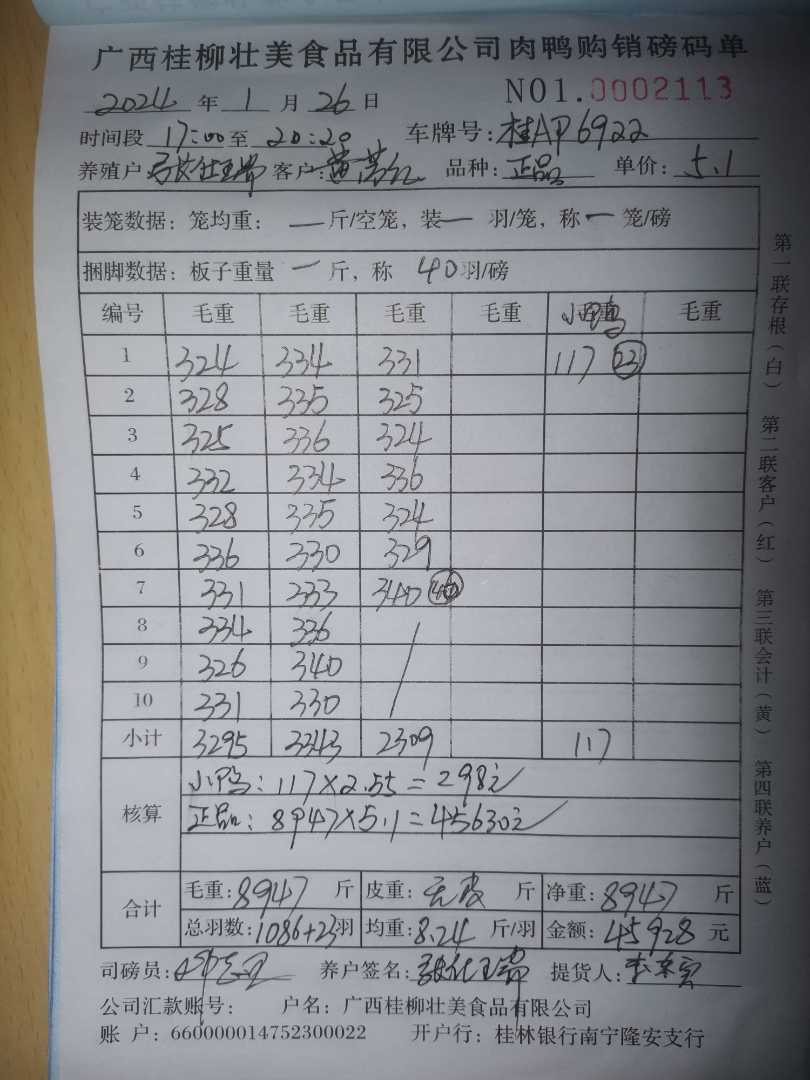 广西桂柳壮美食品有限公司肉鸭购销磅码单
2024年1月26日 NO1.0002113
时间段 17:00至20:20 车牌号:桂AP6922
养殖户 客户: 品种:正品 单价:5.1
装笼数据:笼均重:一斤/空笼,装一羽/笼,称一笼/磅
捆脚数据:板子重量一斤,称 40羽/磅
编号 毛重 毛重 毛重 毛重 小鸭 毛重
1 324 334 331 117 23
2 328 335 325
3 325 336 324
4 332 334 336
5 328 335 324
6 336 330 329
7 331 333 340 46
8 334 336 /
9 326 340
10 331 330
小计 3295 3343 2309 117
核算 小鸭:117×2.55=298元
正品:8947×5.1=45630元
合计 毛重:8947斤 皮重:无皮斤 净重:8947斤
总羽数:1086+23羽 均重:8.24斤/羽 金额:45928元
司磅员: 养户签名: 提货人:
公司汇款账号: 户名:广西桂柳壮美食品有限公司
账 户:660000014752300022 开户行:桂林银行南宁隆安支行
第一联存根(白) 第二联客户(红) 第三联会计(黄) 第四联养户(蓝)